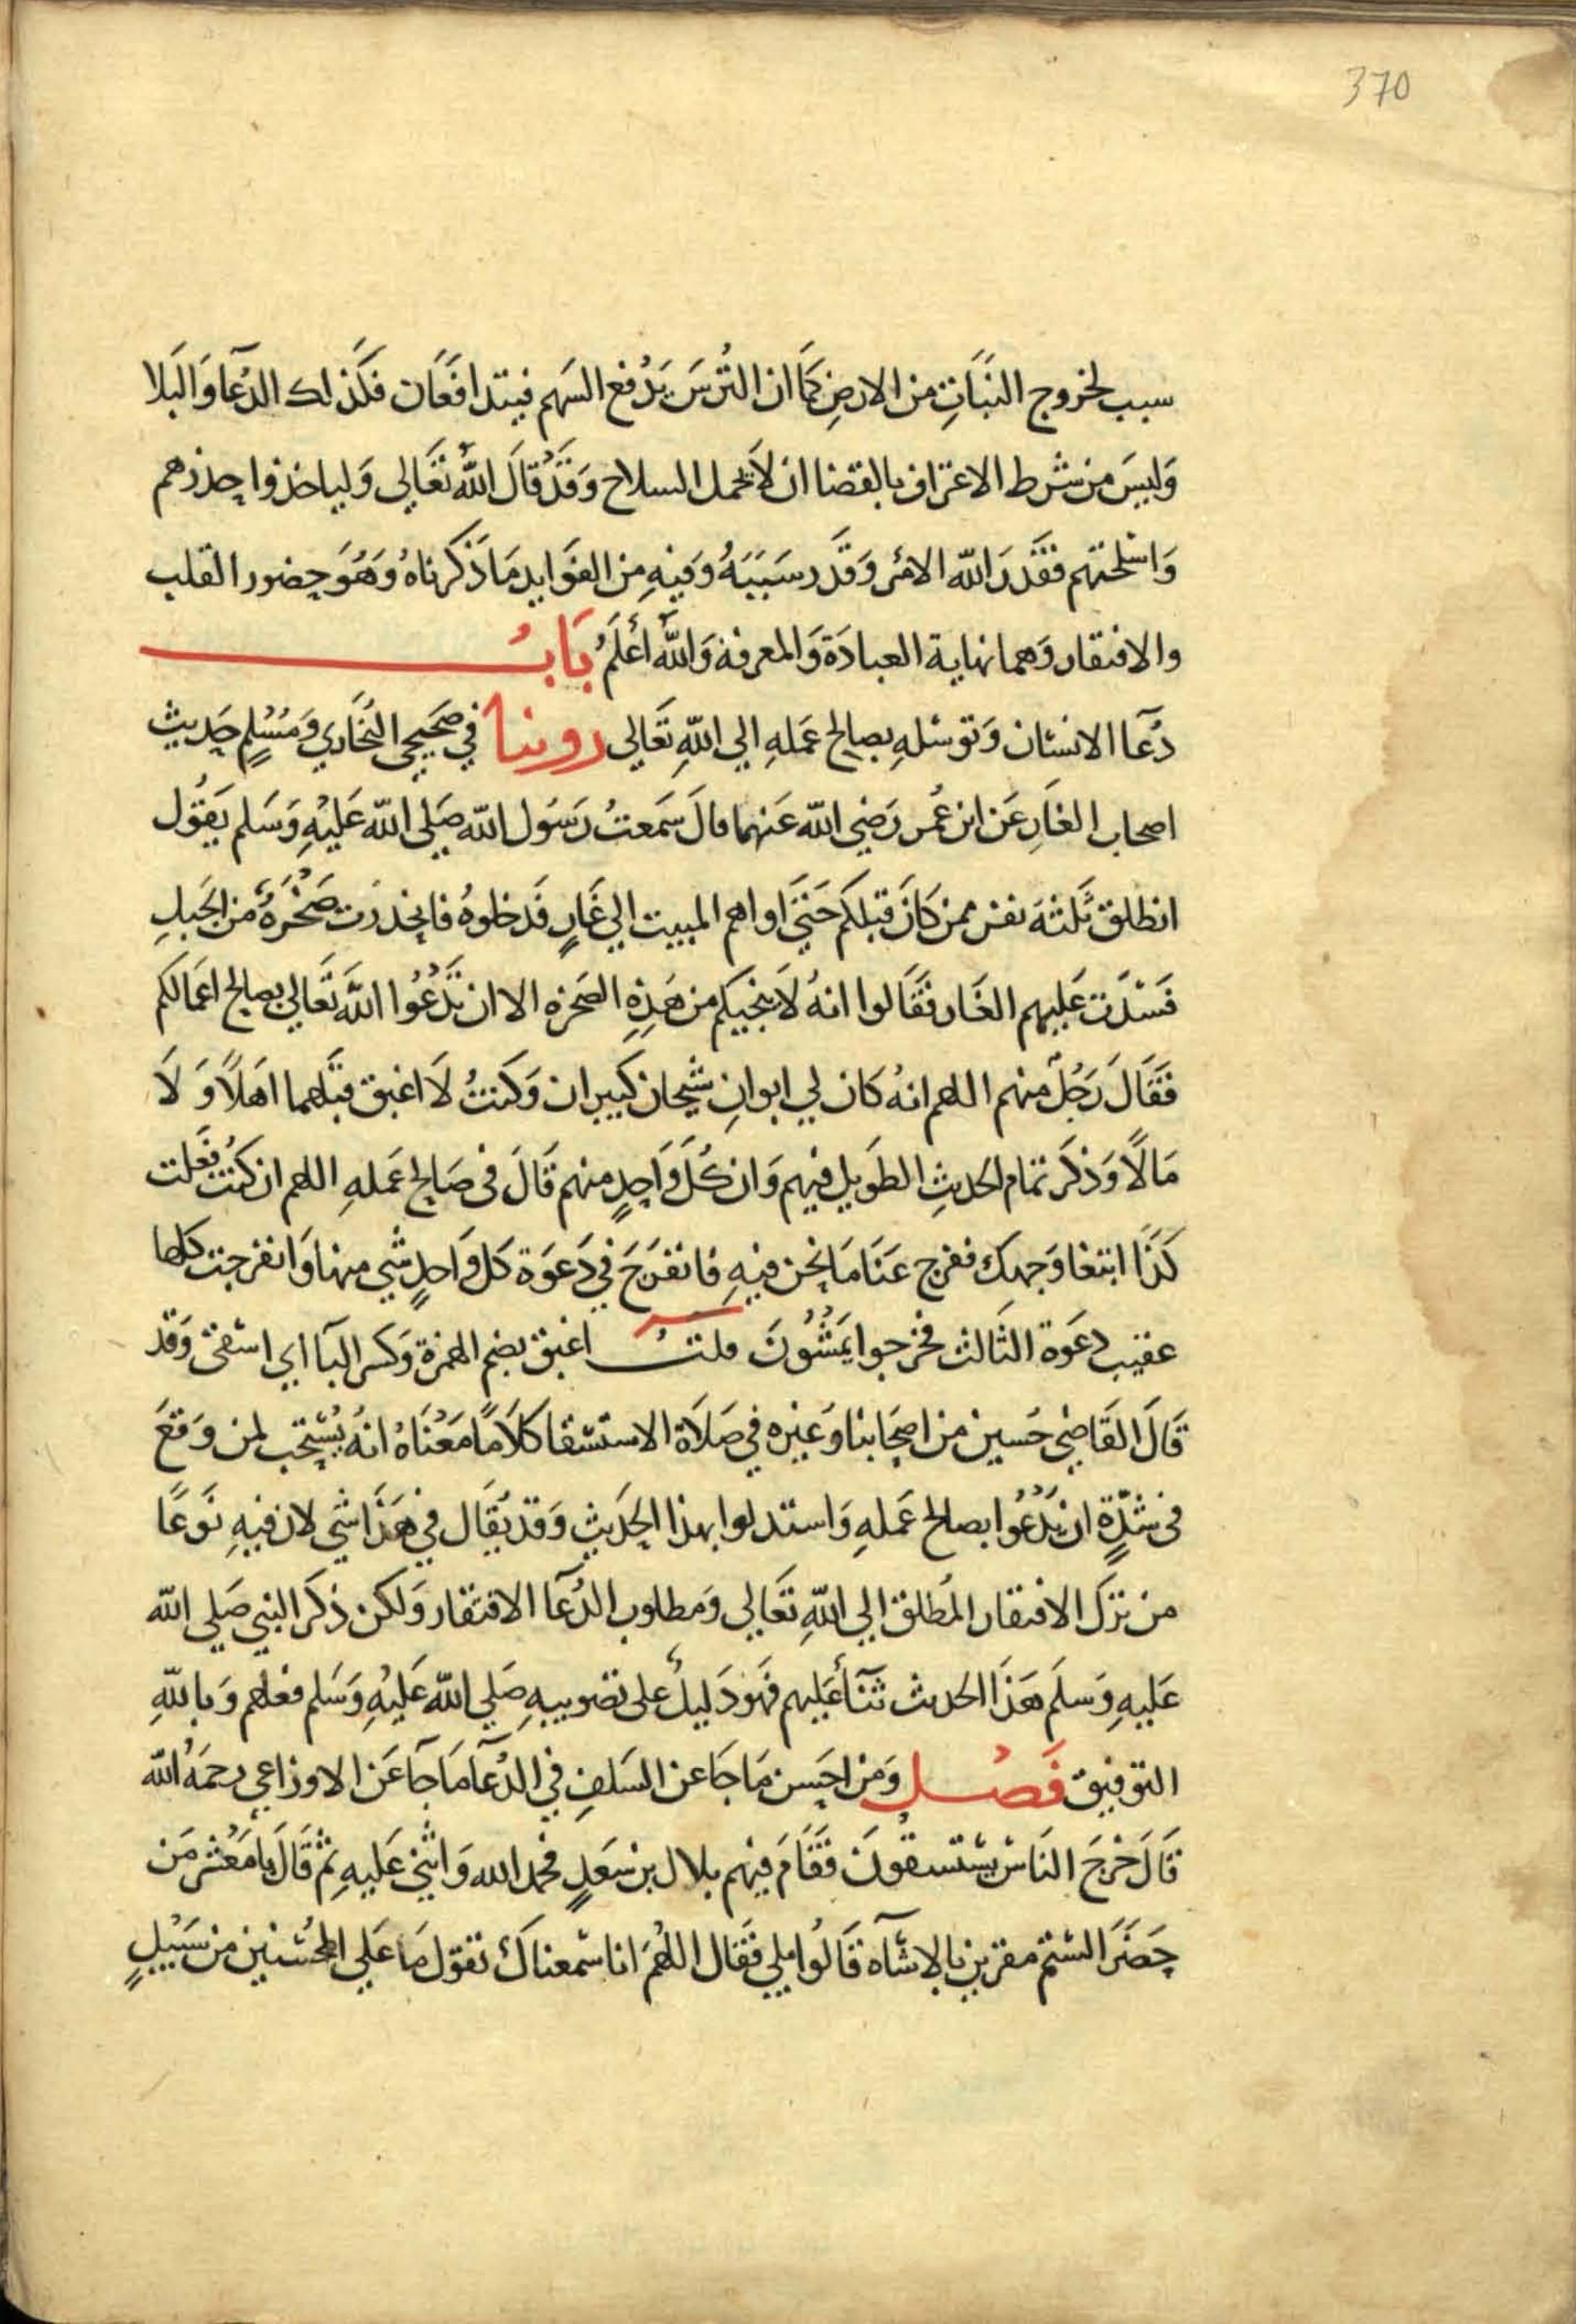 370
سبب لخروج النبات من الارض كما ان الترس يدفع السهم فيتدافعان فكذلك الدعا والبلا
وليس من شرط الاعتراف بالقضا ان لا يحمل السلاح وقد قال الله تعالي ولياخذوا حذرهم
واسلحتهم فقدر الله الامر وقدر سببه وفيه من الفوايد ما ذكرناه وهو حضور القلب
والافتقار وهما نهاية العبادة والمعرفة والله أعلم باب
دعا الانسان وتوسله بصالح عمله الي الله تعالي روينا في صحيحي البخاري ومسلم حديث
اصحاب الغار عن ابن عمر رضي الله عنهما قال سمعت رسول الله صلي الله عليه وسلم يقول
انطلق ثلثة نفر ممن كان قبلكم حتي اواهم المبيت الي غار فدخلوه فانحدرت صخرة من الجبل
فسدت عليهم الغار فقالوا انه لا ينجيكم من هذه الصخرة الا ان تدعوا الله تعالي بصالح اعمالكم
فقال رجل منهم اللهم انه كان لي ابوان شيخان كبيران وكنت لا اغبق قبلهما اهلا ولا
مالا وذكر تمام الحديث الطويل فيهم وان كل واحد منهم قال في صالح عمله اللهم ان كنت فعلت
كذا ابتغا وجهك ففرج عنا ما نحن فيه فانفرج في دعوة كل واحد شي منها وانفرجت كلها
عقيب دعوة الثالث فخرجوا يمشون قلت اغبق بضم الهمزة وكسر البآ اي اسقي وقد
قال القاضي حسين من اصحابنا وغيره في صلاة الاستسقا كلاما معناه انه يستحب لمن وقع
في شدة ان يدعوا بصالح عمله واستدلوا بهذا الحديث وقد يقال في هذا شي لان فيه نوعا
من ترك الافتقار المطلق الي الله تعالي ومطلوب الدعآ الافتقار ولكن ذكر النبي صلي الله
عليه وسلم هذا الحديث ثنآ عليهم فهو دليل على تصويبه صلي الله عليه وسلم فعلهم وبالله
التوفيق فصل ومن احسن ما جا عن السلف في الدعآ ما جآ عن الاوزاعي رحمه الله
قال خرج الناس يستسقون فقام فيهم بلال بن سعد فحمد الله واثني عليه ثم قال يا معشر من
حضر الستم مقرين بالاسآه قالوا بلي فقال اللهم انا سمعناك تقول ما علي المحسنين من سبيل